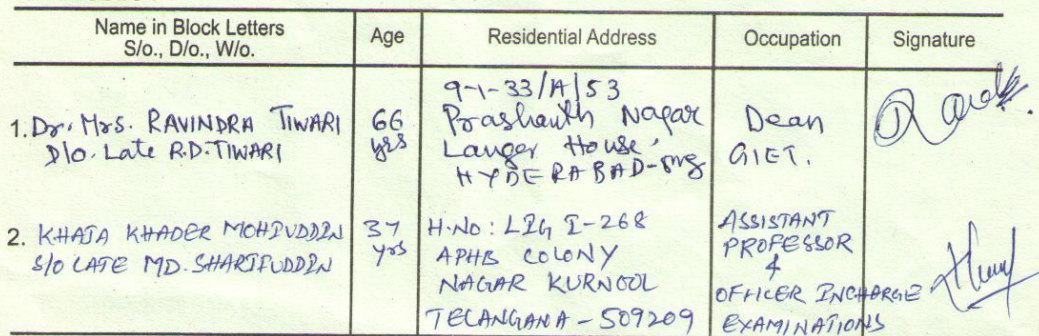 Name in Block Letters
S/o., D/o., W/o.
Age
Residential Address
Occupation
Signature
1. Dr. Mrs. RAVINDRA TIWARI
D/o. Late R.D. TIWARI
66
yrs
9-1-33/A/53
Prashanth Nagar
Langer House,
HYDERABAD-
Dean
GIET.
2. KHAJA KHADER MOHIUDDIN
S/O LATE MD. SHARIFUDDIN
37
yrs
H.No: LIG I-268
APHB COLONY
NAGAR KURNOOL
TELANGANA - 509209
ASSISTANT
PROFESSOR
&
OFFICER INCHARGE
EXAMINATIONS